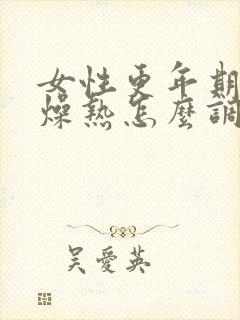 女性更年期
燥熱怎麼調
吳愛英